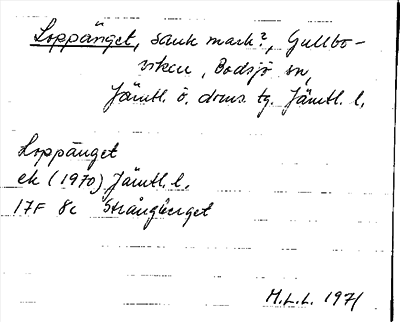 Loppänget, sank mark?, Gullbo-
viken, Bodsjö sn,
Jämtl. ö. doms. tg. Jämtl. l.
Loppänget
ek (1970) Jämtl. l.
17F 8c Strångberget
M.L.L. 1971